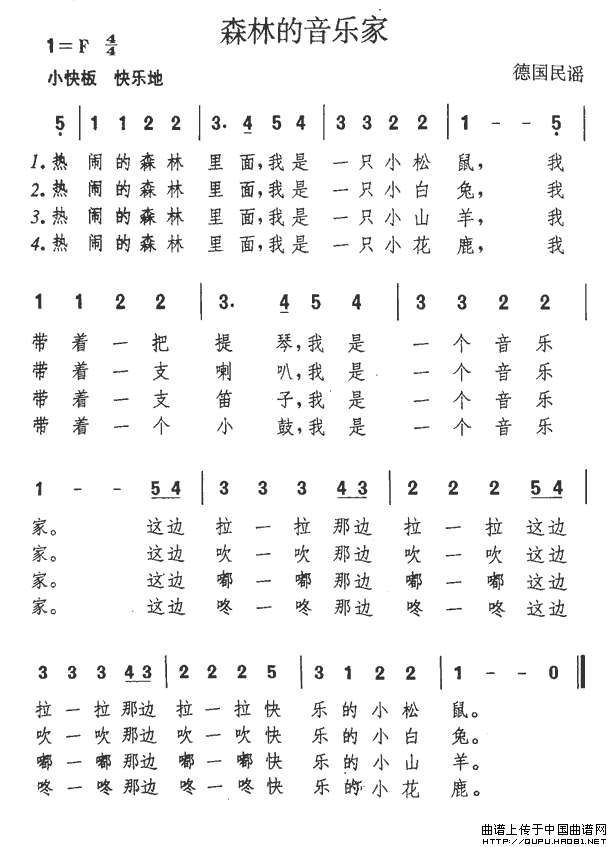 森林的音乐家
1=F 4/4
小快板 快乐地
德国民谣
5̣ | 1 1 2 2 | 3. 4 5 4 | 3 3 2 2 | 1 - - 5̣ |
1.热 闹的森林 里 面,我是 一只小松 鼠, 我
2.热 闹的森林 里 面,我是 一只小白 兔, 我
3.热 闹的森林 里 面,我是 一只小山 羊, 我
4.热 闹的森林 里 面,我是 一只小花 鹿, 我
1 1 2 2 | 3. 4 5 4 | 3 3 2 2 |
带 着 一 把 提 琴,我 是 一 个 音 乐
带 着 一 支 喇 叭,我 是 一 个 音 乐
带 着 一 支 笛 子,我 是 一 个 音 乐
带 着 一 个 小 鼓,我 是 一 个 音 乐
1 - - 5 4 | 3 3 3 4 3 | 2 2 2 5 4 |
家。 这边 拉 一 拉 那边 拉 一 拉 这边
家。 这边 吹 一 吹 那边 吹 一 吹 这边
家。 这边 嘟 一 嘟 那边 嘟 一 嘟 这边
家。 这边 咚 一 咚 那边 咚 一 咚 这边
3 3 3 4 3 | 2 2 2 5 | 3 1 2 2 | 1 - - 0 ‖
拉 一 拉 那边 拉 一 拉 快 乐 的 小 松 鼠。
吹 一 吹 那边 吹 一 吹 快 乐 的 小 白 兔。
嘟 一 嘟 那边 嘟 一 嘟 快 乐 的 小 山 羊。
咚 一 咚 那边 咚 一 咚 快 乐 的 小 花 鹿。
曲谱上传于中国曲谱网
HTTP://QUPU.HAO81.NET